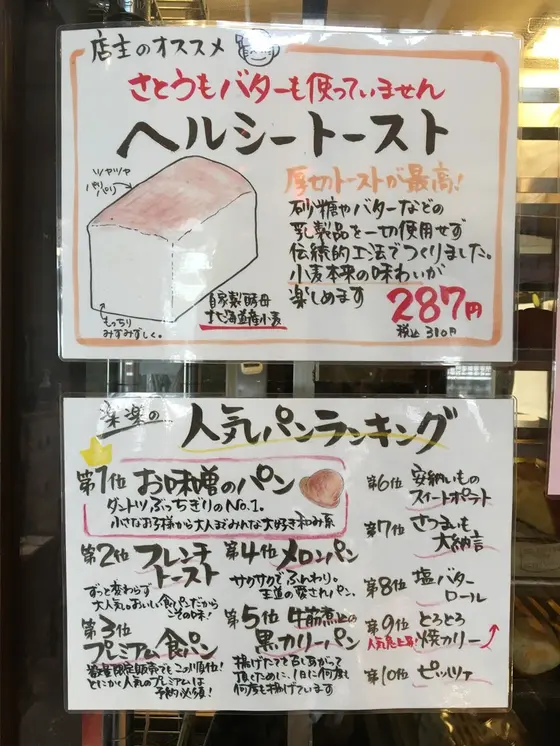 店主のオススメ
さとうもバターも使っていません
ヘルシートースト
ツヤツヤ
パリパリ
厚切トーストが最高!
砂糖やバターなどの
乳製品を一切使用せず
伝統的工法でつくりました。
小麦本来の味わいが
楽しめます
287円
税込310円
自家製酵母
北海道産小麦
もっちり
みずみずしく。
楽楽の
人気パンランキング
第1位 お味噌のパン
ダントツぶっちぎりのNo.1。
小さなお子様から大人までみんな大好き和み系
第2位 フレンチ
トースト
ずっと変わらず
大人気。おいしい食パンだから
こその味!
第3位
プレミアム食パン
数量限定販売でもこの順位!
とにかく人気のプレミアムは
予約必須!
第4位 メロンパン
サクサクでふんわり。
王道の愛されパン。
第5位 牛筋煮込の
黒カリーパン
揚げたてをめしあがって
頂くために、1日に何度も
何度も揚げています
第6位 安納いもの
スイートポテト
第7位 さつまいも
大納言
第8位 塩バター
ロール
第9位 とろとろ
焼カリー
人気急上昇!
第10位 ピッツァ